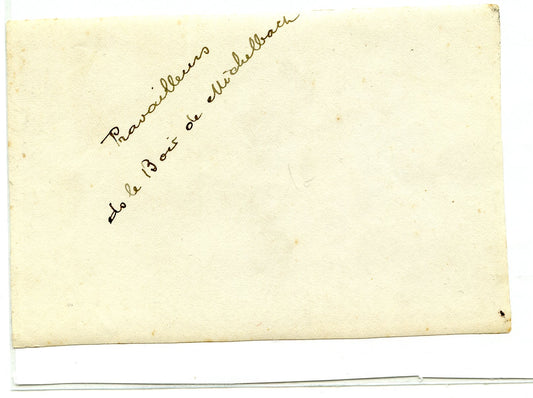 Travailleurs
ds le Bois de Michelbach